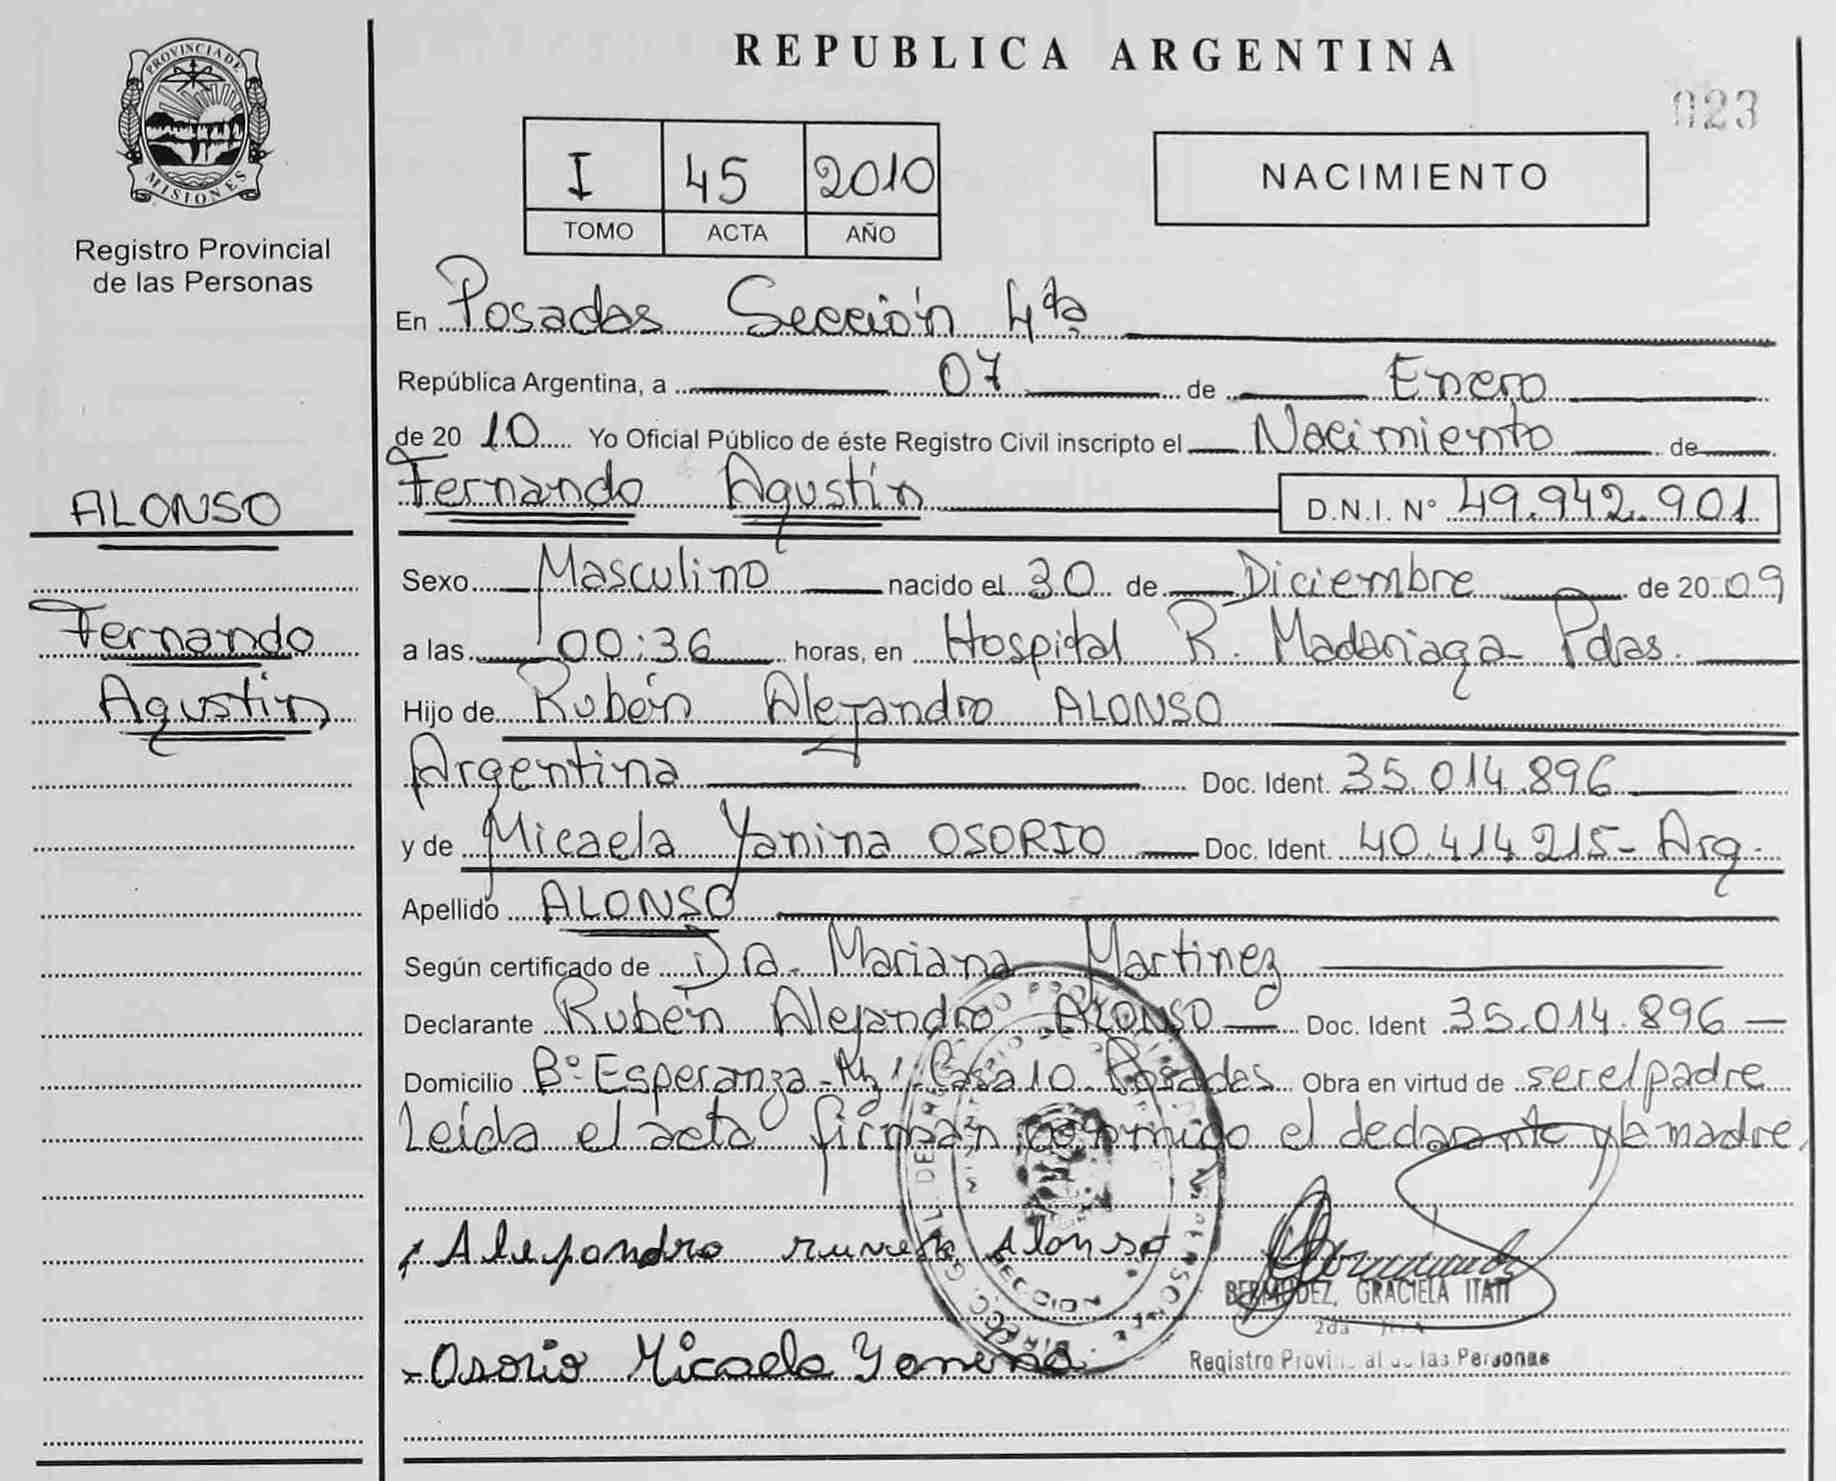 REPUBLICA ARGENTINA
023
PROVINCIA DE
MISIONES
Registro Provincial
de las Personas
I 45 2010
TOMO ACTA AÑO
NACIMIENTO
En Posadas Sección 4ta
República Argentina, a 07 de Enero
de 20 10 Yo Oficial Público de éste Registro Civil inscripto el Nacimiento de
Fernando Agustín D.N.I. Nº 49.942.901
ALONSO
Fernando
Agustín
Sexo Masculino nacido el 30 de Diciembre de 20 09
a las 00:36 horas, en Hospital R. Madariaga Pdas.
Hijo de Rubén Alejandro ALONSO
Argentina Doc. Ident. 35.014.896
y de Micaela Yanina OSORIO Doc. Ident. 40.414.215- Arg.
Apellido ALONSO
Según certificado de Dra. Mariana Martinez
Declarante Rubén Alejandro ALONSO Doc. Ident 35.014.896
Domicilio Bº Esperanza-Mz 1 Casa 10 Posadas Obra en virtud de ser el padre
Leída el acta firman conmigo el declarante y la madre.
Alejandro Alonso
BERMUDEZ, GRACIELA ITATI
Osorio Micaela Yanina
Registro Provincial de las Personas